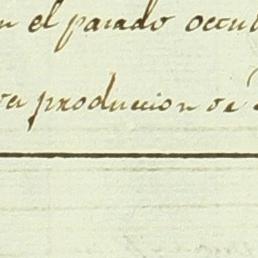 en el parado ocul
va produccion de